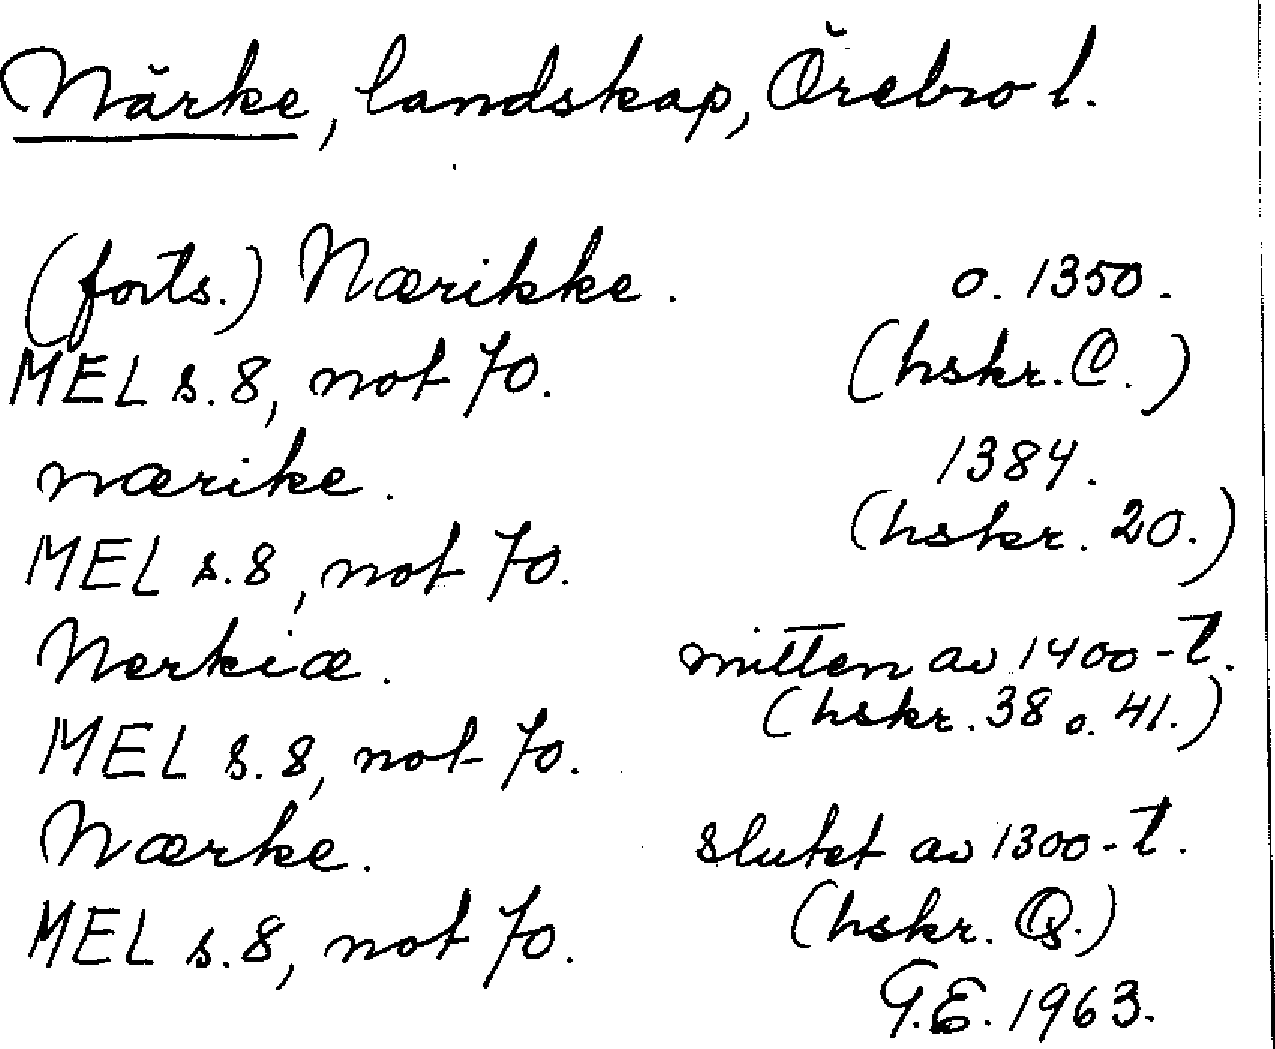 Närke, landskap, Örebro l.
(forts.) Nærikke. o. 1350.
MEL s. 8, not 70. (hskr. C.)
nærike. 1384.
MEL s. 8, not 70. (hskr. 20.)
Nerkiæ. mitten av 1400-t.
(hskr. 38 o. 41.)
MEL s. 8, not 70.
Nærke. slutet av 1300-t.
MEL s. 8, not 70. (hskr. Q.)
G.E. 1963.